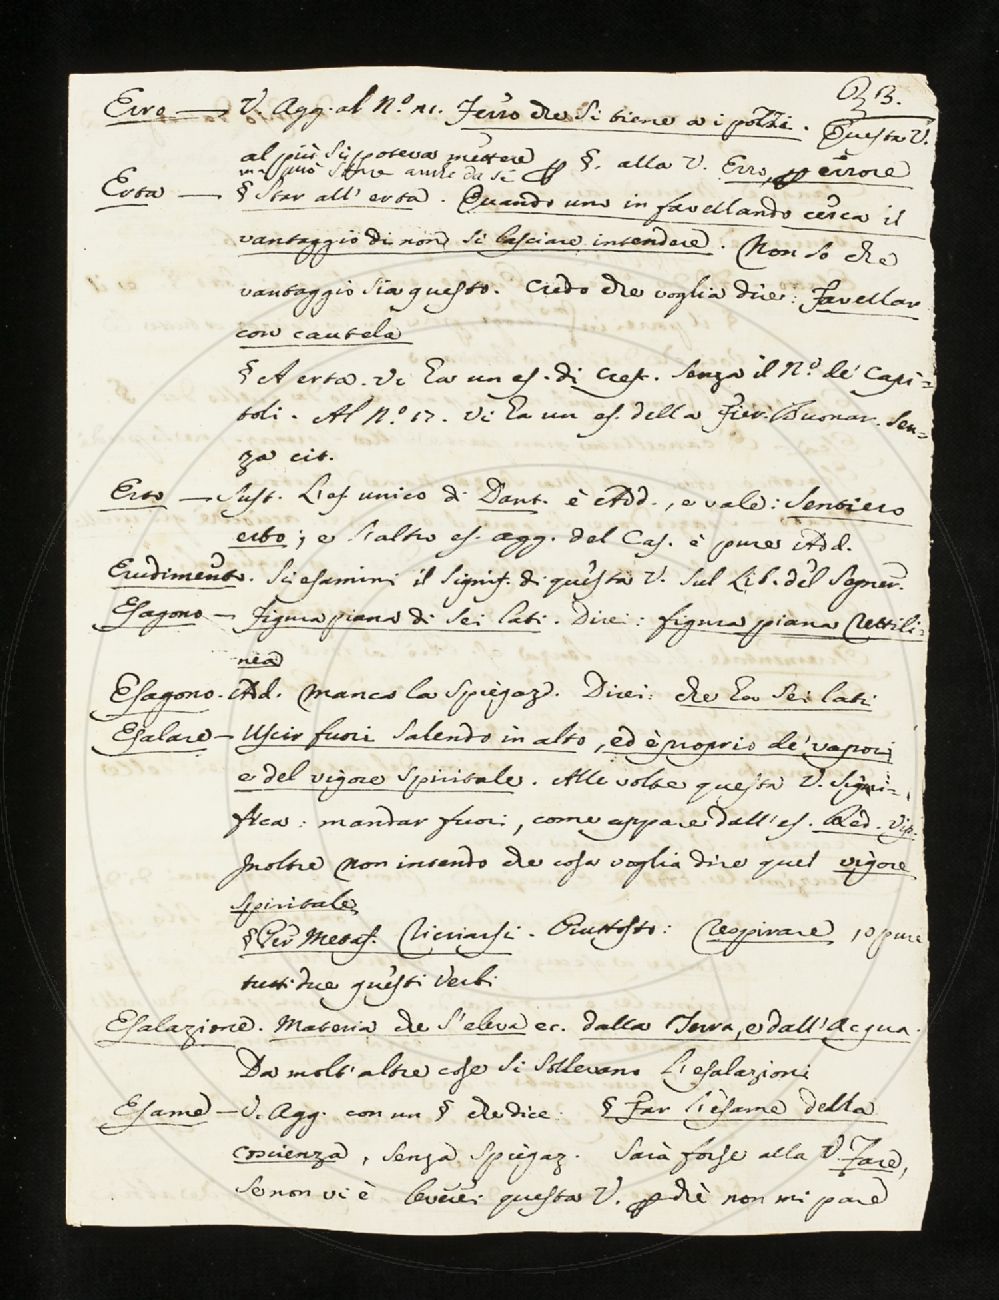 23.
Erro — V. Agg. al N.º 21. Ferro che si tiene a i polzi. Questa V.
al più si poteva mettere §. alla V. Erro, errore
ma può stare anche da sé
Erta — § Star all'erta. Quando uno in favellando cerca il
vantaggio di non si lasciare intendere. Non so che
vantaggio sia questo. Credo che voglia dire: Favellar
con cautela
§ A erta. Vi ha un es. di Cres. senza il N.º de' Capi=
toli. Al N.º 17. vi ha un es. della Fier. Buonar. sen=
za cit.
Erto — Sust. L'es. unico di Dant. è Add., e vale: sentiero
erto; e l'altro es. agg. del Cas. è pure Add.
Erudimento. Si esamini il signif. di questa V. sul Lib. del Segner.
Esagono — Figura piana di sei lati. Direi: figura piana rettili=
nea
Esagono. Add. manca la spiegaz. Direi: che ha sei lati
Esalare — Uscir fuori salendo in alto, ed è proprio de' vapori
e del vigore spiritale. Alle volte questa V. signi=
fica: mandar fuori, come appare dall'es. Red. Vip.
Inoltre non intendo che cosa voglia dire quel vigore
spiritale
§ Per Metaf. Ricriarsi. Piuttosto: Respirare, o pure
tutti due questi Verbi
Esalazione. Materia che s'eleva ec. dalla Terra, e dall'Acqua.
Da molt'altre cose si sollevano l'esalazioni
Esame — V. Agg. con un § che dice: § Far l'esame della
coscienza, senza spiegaz. Sarà forse alla V. Fare,
se non vi è leverei questa V. che non mi pare